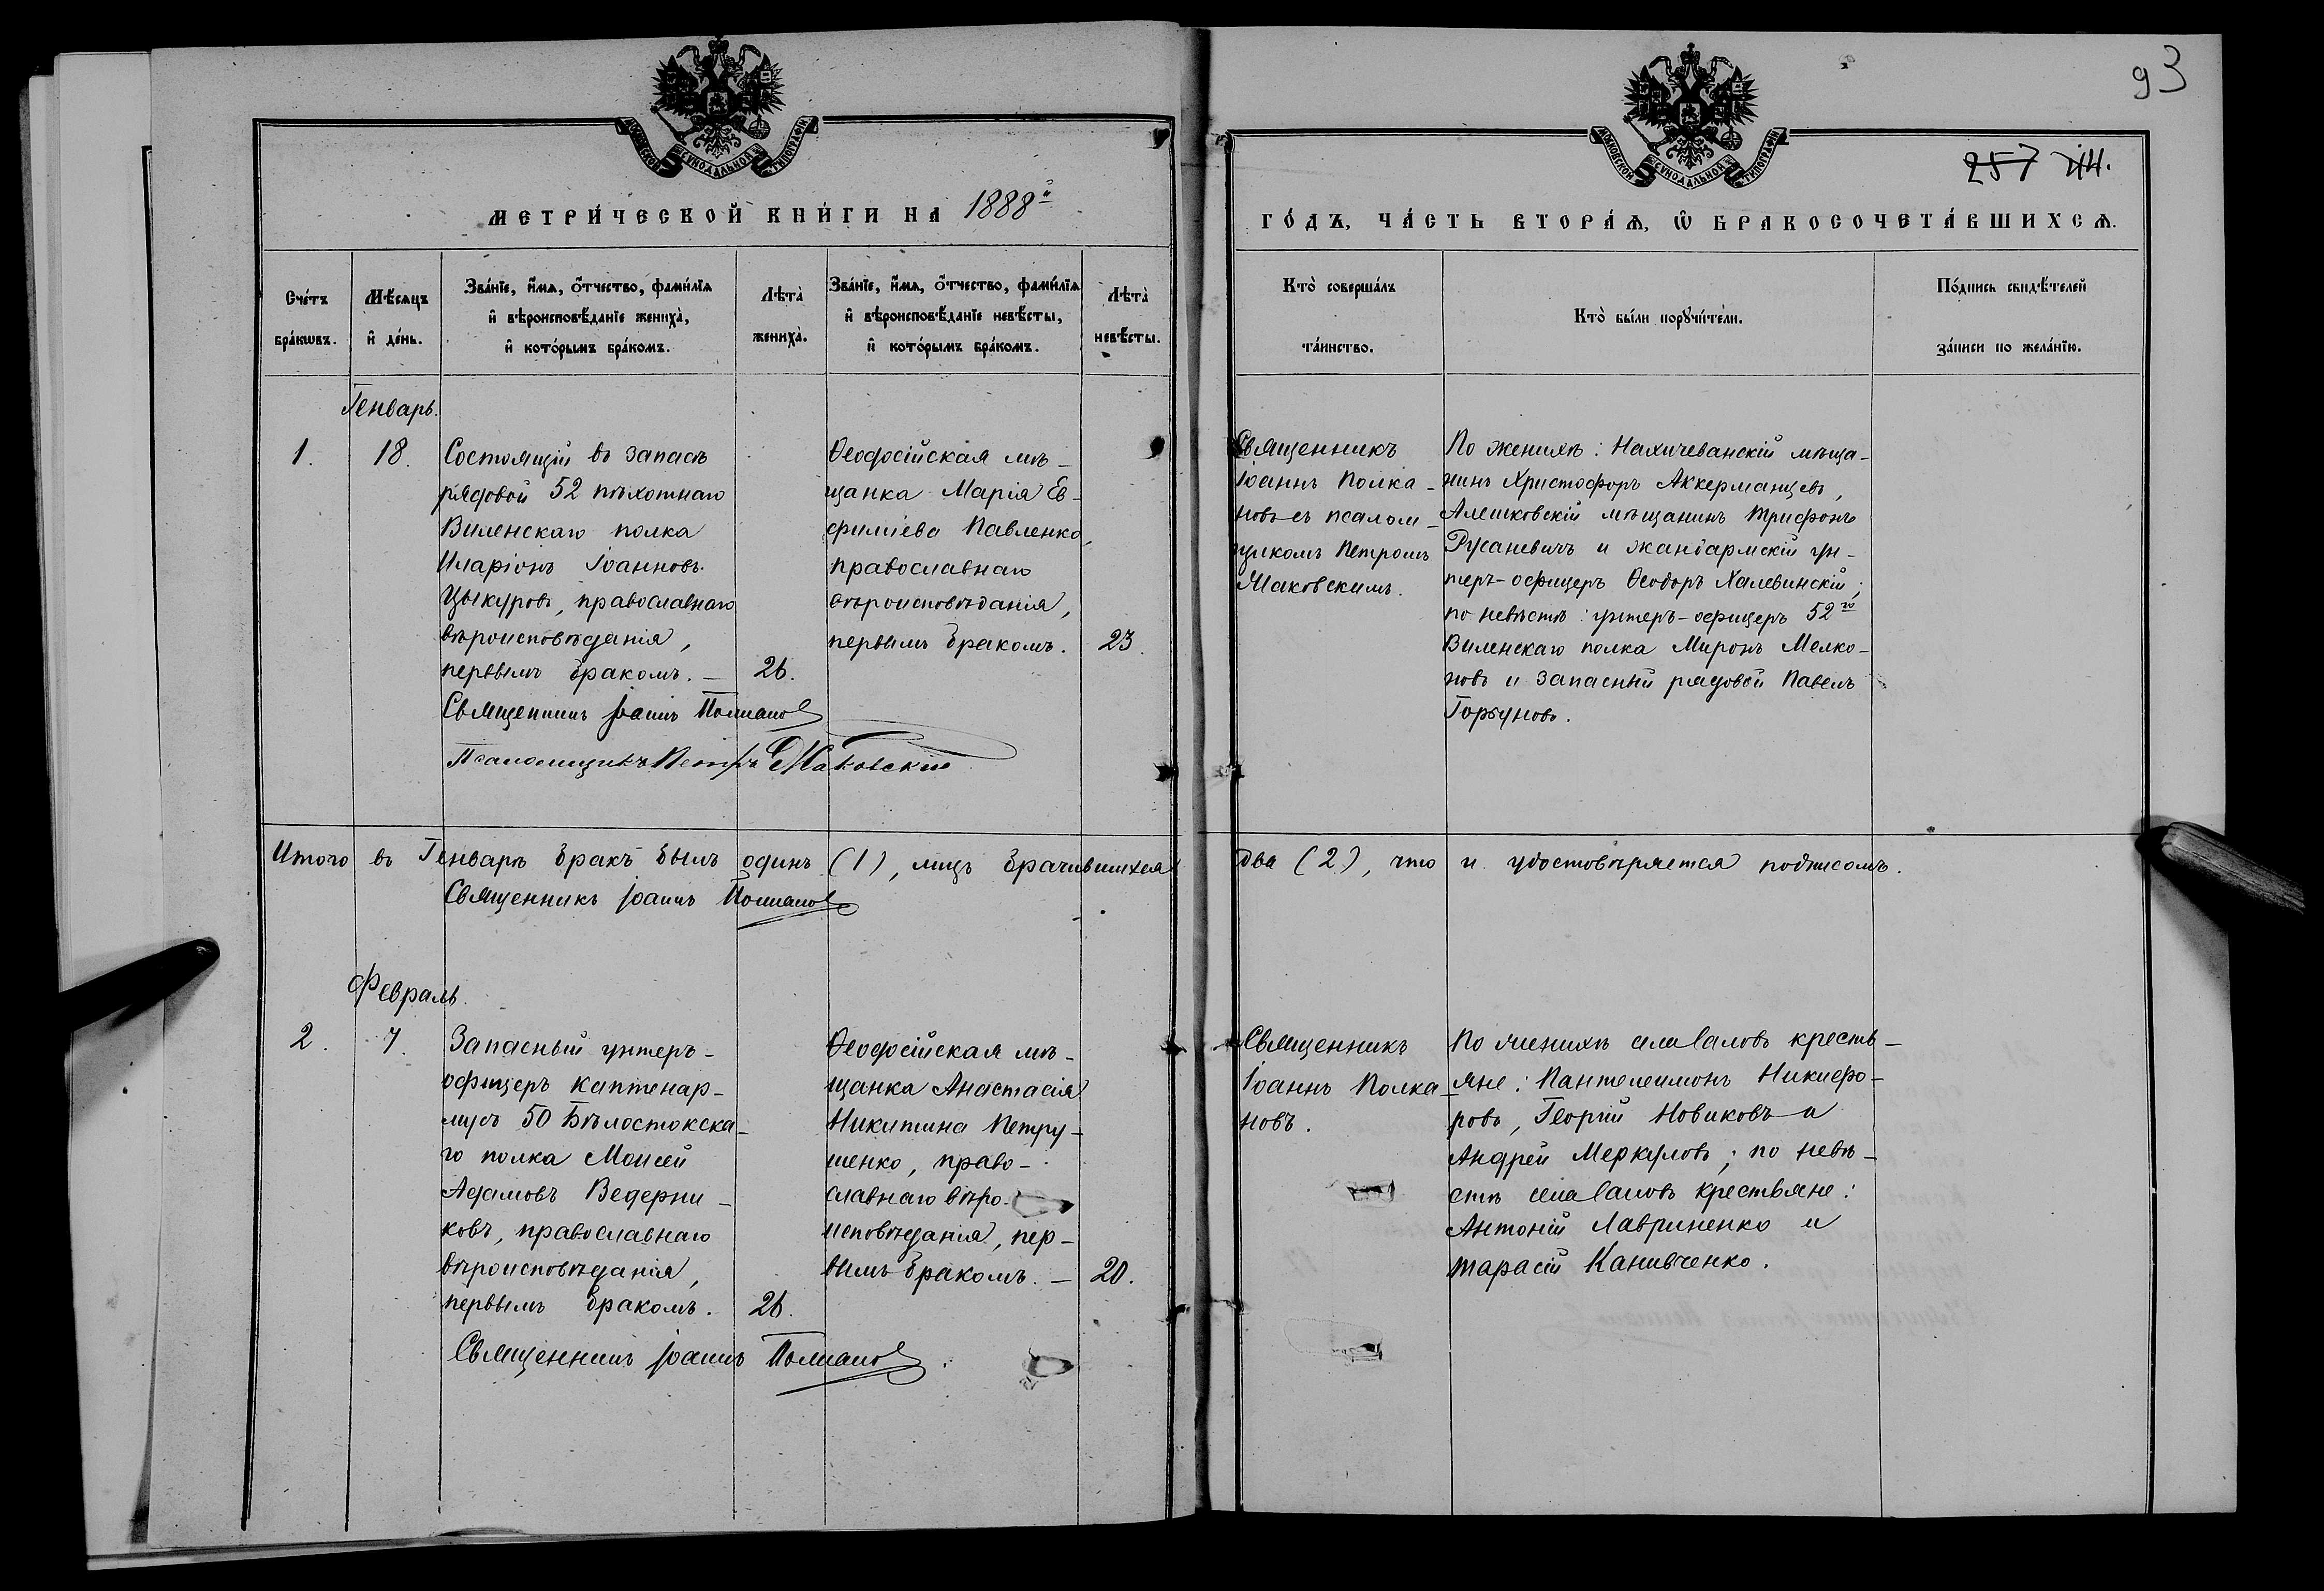 93
257
МОСКОВСКОЙ СѴНОДАЛЬНОЙ ТИПОГРАФІИ
МОСКОВСКОЙ СѴНОДАЛЬНОЙ ТИПОГРАФІИ
МЕТРИ́ЧЕСКОЙ КНИ́ГИ НА 1888й
ГО́ДЪ, ЧА́СТЬ ВТОРА́Ѧ, Ѽ БРАКОСОЧЕТА́ВШИХСѦ.
Сче́тъ
бра́кѡвъ.
Мѣ́сяцъ
и҆ де́нь.
Зва́нїе, и҆́мя, ѻ҆́тчество, фами́лїя
и҆ вѣроисповѣ́данїе жениха̀,
и҆ кото́рымъ бра́комъ.
Лѣта̀
жениха̀.
Зва́нїе, и҆́мя, ѻ҆́тчество, фами́лїя
и҆ вѣроисповѣ́данїе невѣ́сты,
и҆ кото́рымъ бра́комъ.
Лѣта̀
невѣ́сты.
Кто̀ соверша́лъ
та́инство.
Кто̀ бы́ли порꙋчи́тели.
По́дпись свидѣ́телей
за́писи по жела́нїю.
Генварь.
1.
18.
Состоящій въ запасѣ
рядовой 52 пѣхотнаго
Виленскаго полка
Иларіонъ Іоанновъ
Цыкуровъ, православнаго
вѣроисповѣданія,
первымъ бракомъ. —
26.
Ѳеодосійская мѣ-
щанка Марія Ев-
фиміева Павленко,
православнаго
вѣроисповѣданія,
первымъ бракомъ.
23.
Священникъ
Іоаннъ Полка-
новъ съ псалом-
щикомъ Петромъ
Маковскимъ.
По женихѣ: Нахичеванскій мѣща-
нинъ Христофоръ Аккерманцевъ,
Алешковскій мѣщанинъ Трифонъ
Русаневичъ и жандармскій ун-
теръ-офицеръ Ѳеодоръ Халевинскій;
по невѣстѣ: унтеръ-офицеръ 52го
Виленскаго полка Миронъ Мелко-
новъ и запасный рядовой Павелъ
Горбуновъ.
Священникъ Іоаннъ Полкановъ
Псаломщикъ Петръ Маковскій
Итого въ Генварѣ бракъ былъ одинъ (1), лицъ брачившихся два (2), что и удостовѣряется подписомъ.
Священникъ Іоаннъ Полкановъ
Февраль.
2.
7.
Запасный унтеръ-
офицеръ каптенар-
мусъ 50 Бѣлостокска-
го полка Моисей
Адамовъ Ведерни-
ковъ, православнаго
вѣроисповѣданія,
первымъ бракомъ.
26.
Ѳеодосійская мѣ-
щанка Анастасія
Никитина Петру-
шенко, право-
славнаго вѣро-
исповѣданія, пер-
вымъ бракомъ. —
20.
Священникъ
Іоаннъ Полка-
новъ.
По женихѣ села Саловъ кресть-
яне: Пантелеимонъ Никифо-
ровъ, Георгій Новиковъ и
Андрей Меркуловъ; по невѣ-
стѣ села Саловъ крестьяне:
Антоній Лавриненко и
Тарасій Канивченко.
Священникъ Іоаннъ Полкановъ.